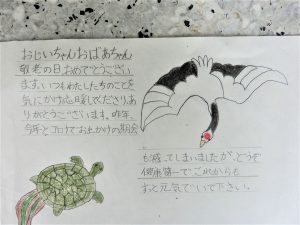 おじいちゃんおばあちゃん
敬老の日おめでとうござい
ます。いつもわたしたちのことを
気にかけ応援してくださりあ
りがとうございます。昨年、
今年とコロナでお出かけの機会
も減ってしまいましたが、どうぞ
健康第一でこれからも
ずっと元気でいて下さい。